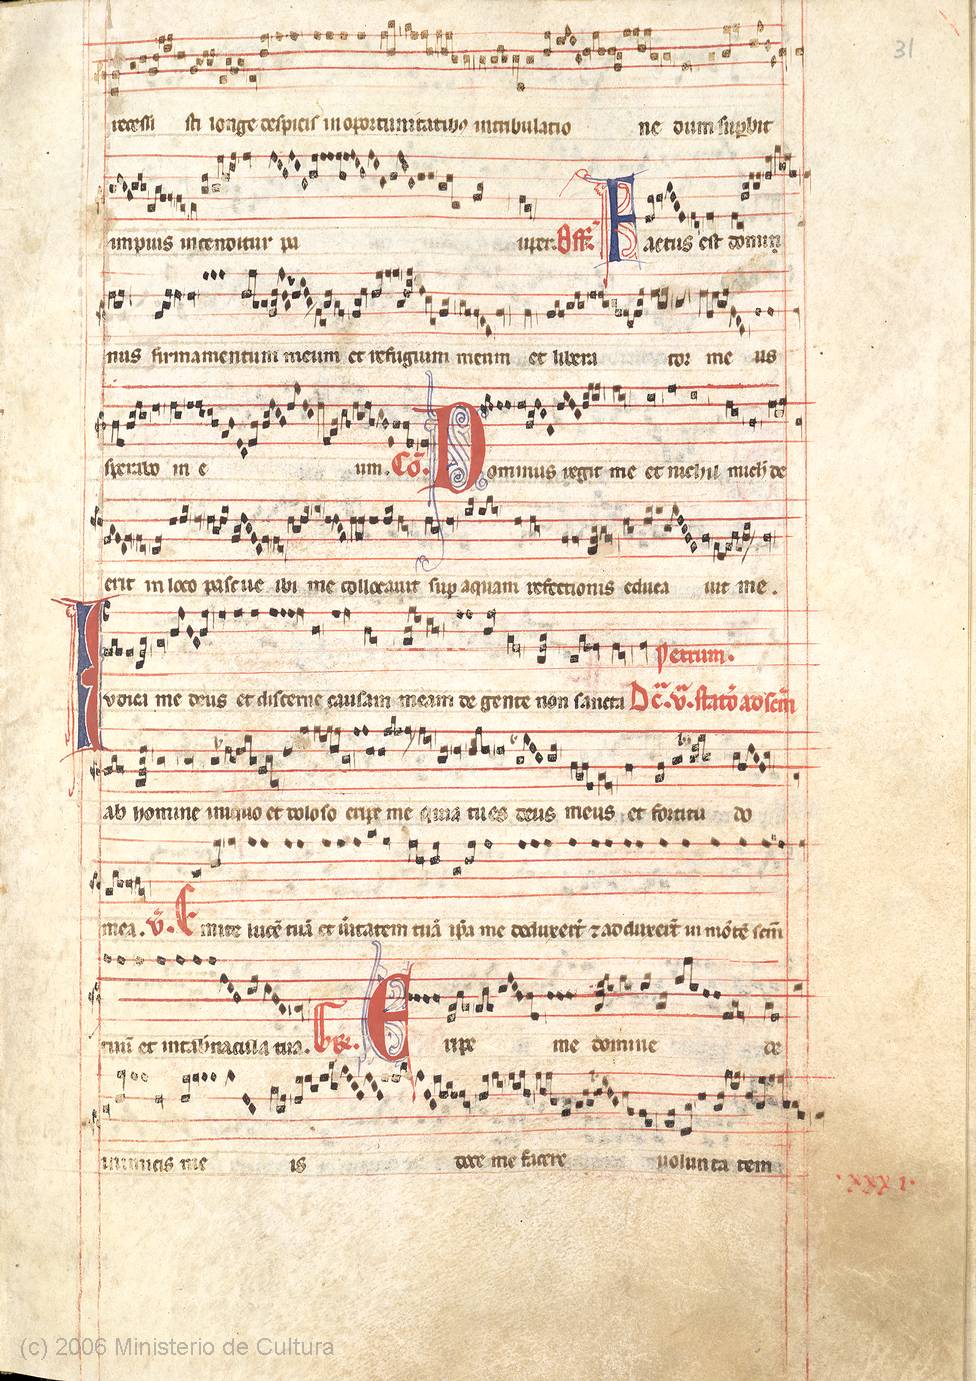 31
recessi sti longe despicis in oportunitatibus in tribulatio ne dum superbit
impius incenditur pa uper. Off. Factus est domin
nus firmamentum meum et refugium meum et libera tor me us
sperabo in e um. Cō. Dominus regit me et nichil michi de
erit in loco pascue ibi me collocavit sup aquam refectionis educa vit me.
Petrum.
Iudica me deus et discerne causam meam de gente non sancta Dc̄. v̄. statō ad scm̄
ab homine iniquo et doloso eripe me quia tu es deus meus et fortitu do
mea. v̄. Emitte lucē tuā et v̄itatem tuā ip̄a me deduxer̄t ⁊ adduxer̄t in mōtē scm̄
tuū et in tab̄nacula tua. Gr. Eripe me domine de
inimicis me is doce me facere voluntatem
.XXXI.
(c) 2006 Ministerio de Cultura